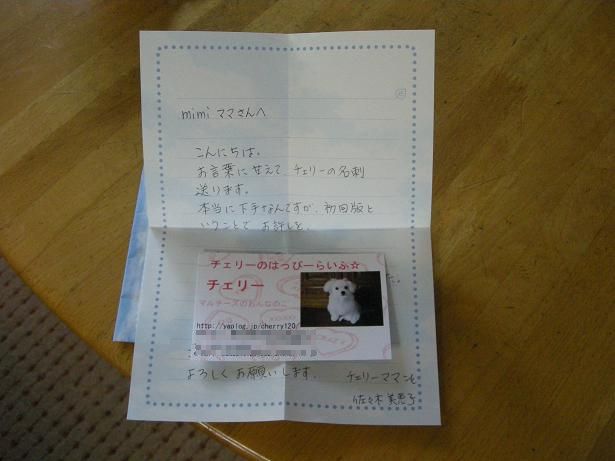 mimiママさんへ
こんにちは。
お言葉に甘えて チェリーの名刺
送ります。
本当に下手なんですが、初回版と
いうことで お許しを。
た。
チェリーのはっぴーらいふ☆
チェリー
マルチーズのおんなのこ
http://yaplog.jp/cherry120/
よろしくお願いします。
チェリーママこと
佐々木 美恵子